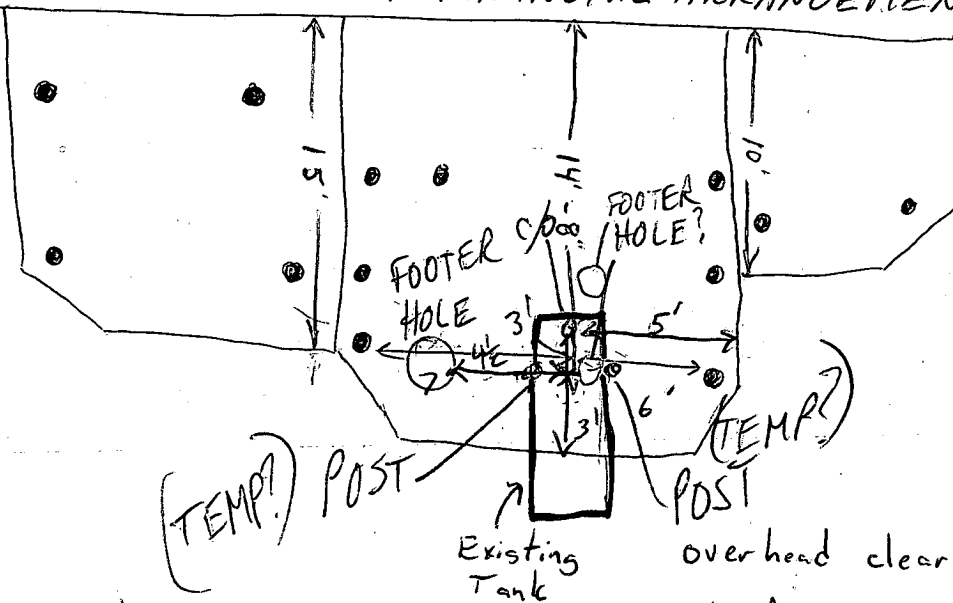 ARRANGEMENT
15'
14'
10'
C/O
FOOTER
HOLE?
FOOTER
HOLE
3'
5'
4½
6'
3'
(TEMP?) POST
(TEMP?)
POST
Existing
Tank
overhead clear